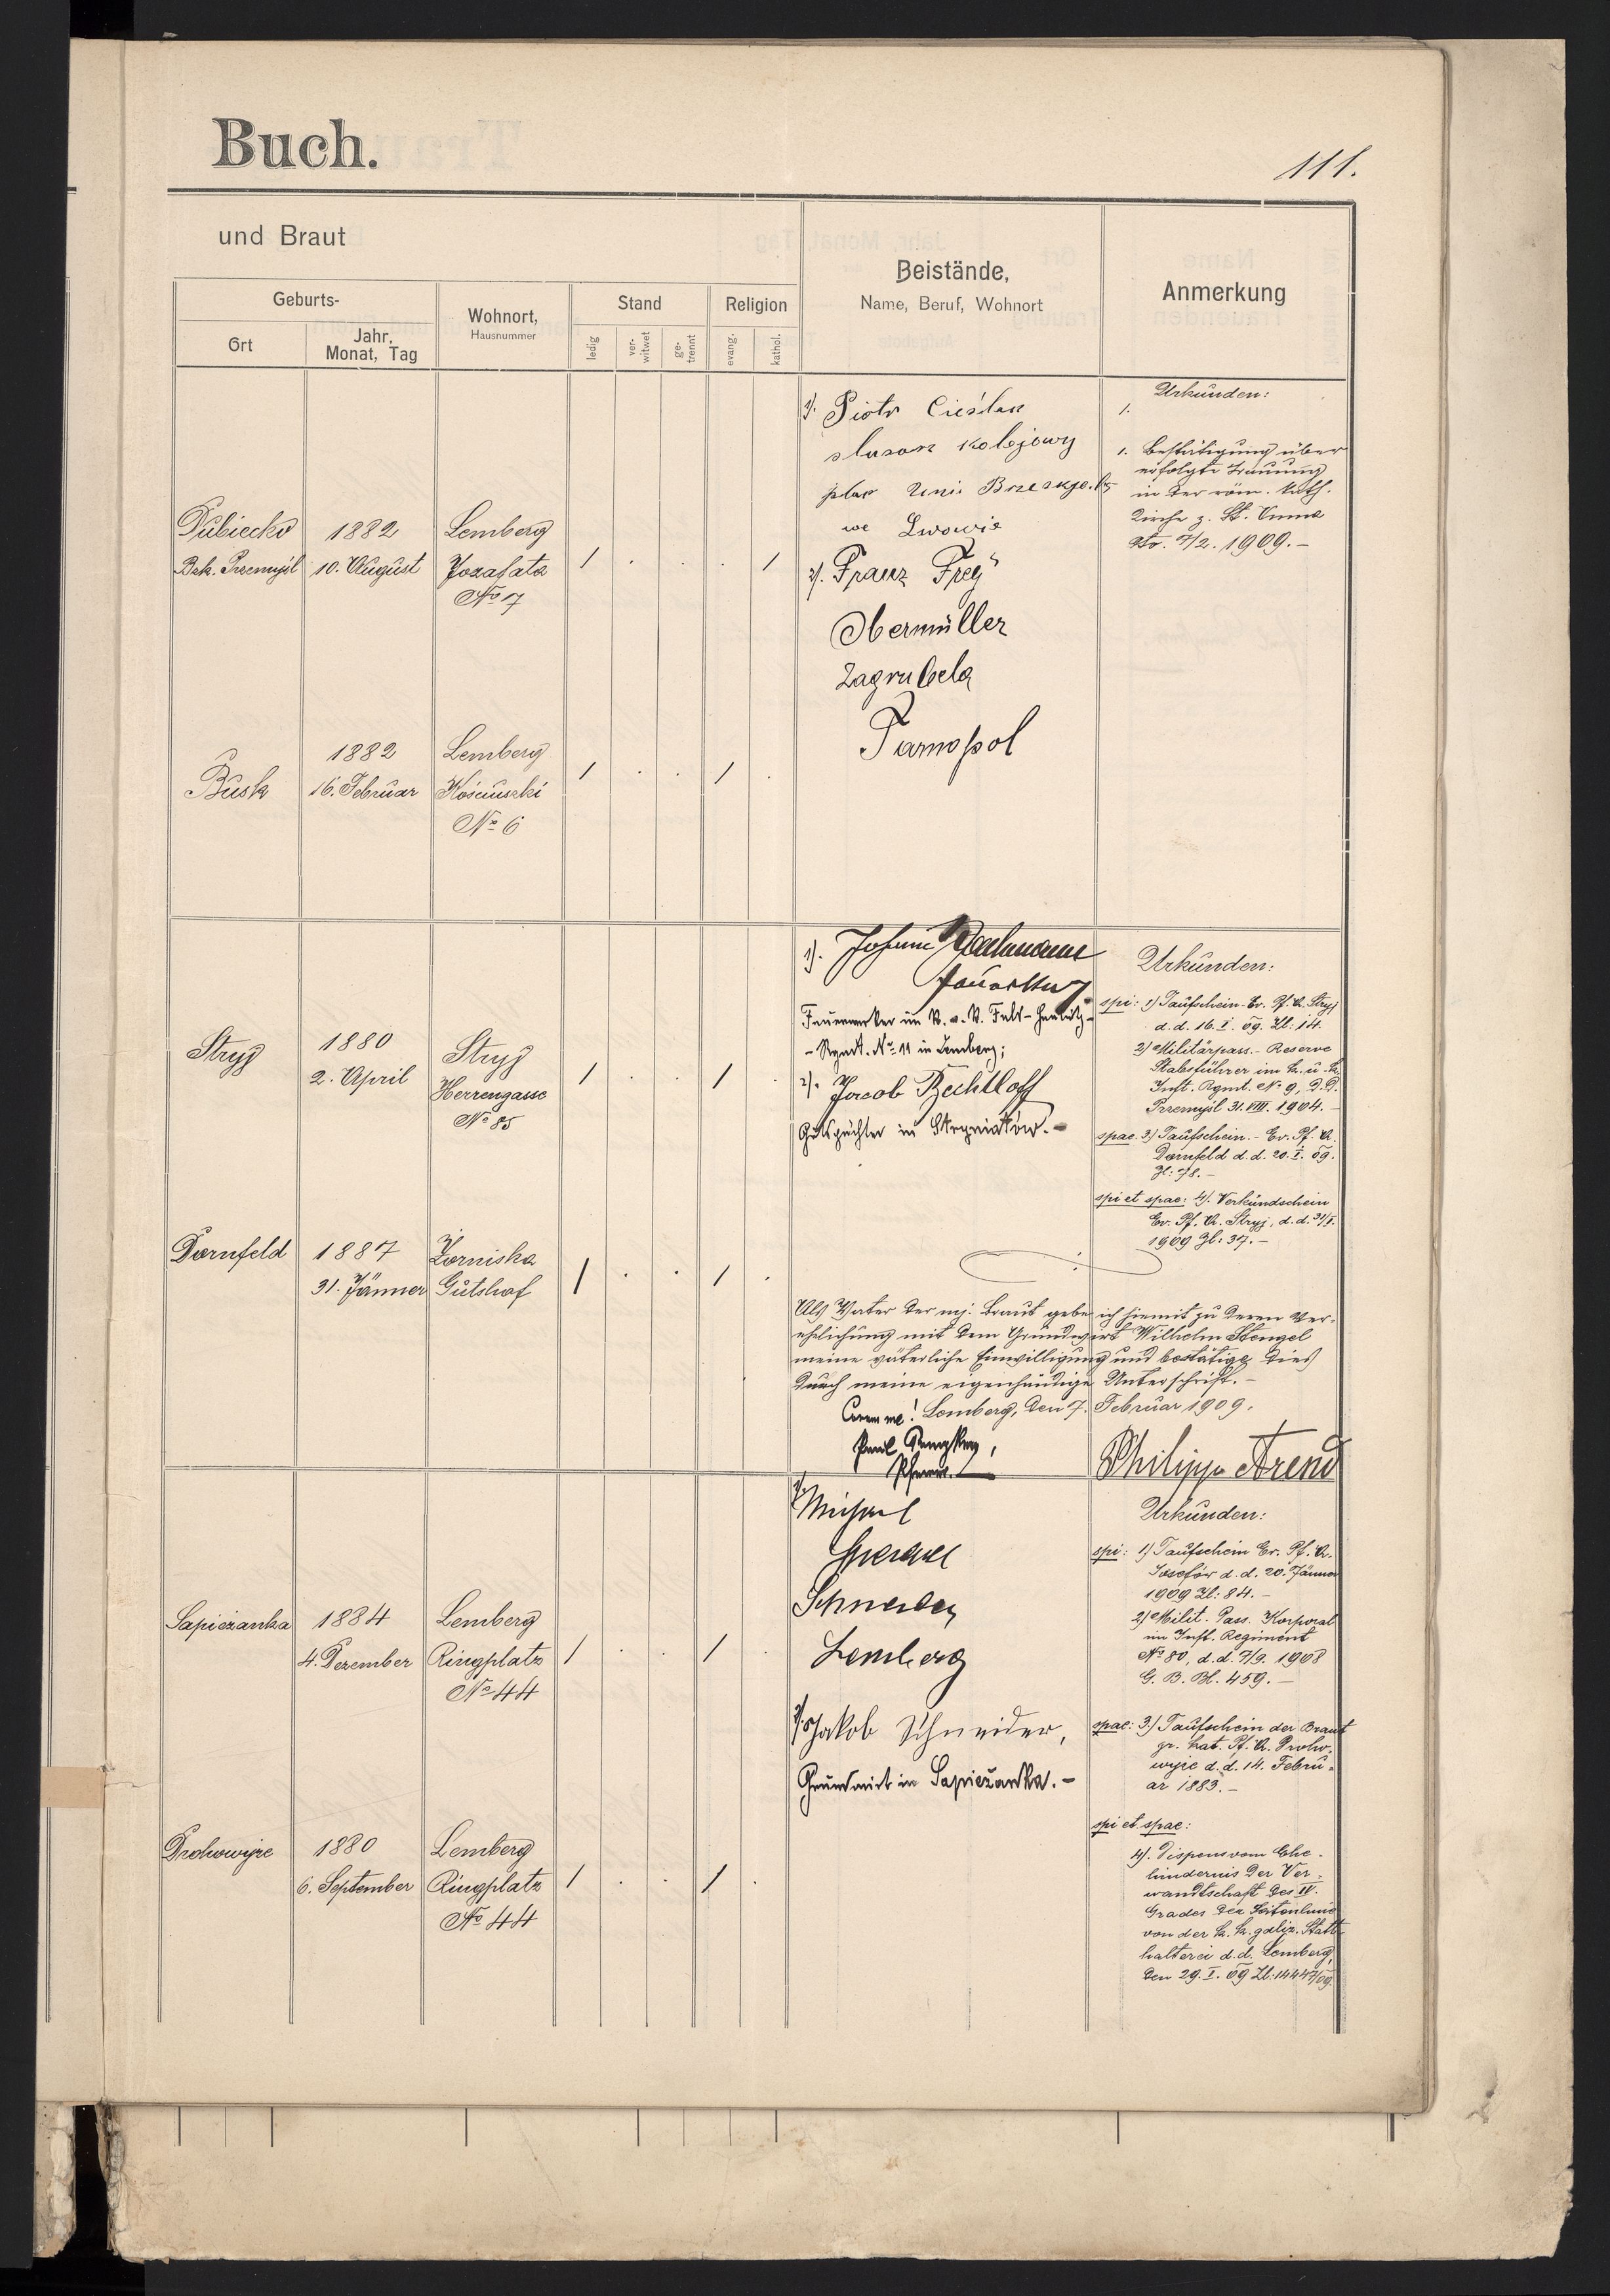 Buch.
111.
und Braut
Beistände,
Name, Beruf, Wohnort
Anmerkung
Geburts-
Ort
Jahr,
Monat, Tag
Wohnort,
Hausnummer
Stand
ledig
ver-
witwet
ge-
trennt
Religion
evang.
kathol.
Dubiecko
Bzk. Przemyśl
1882
10. August
Lemberg
Jozafata
No 17
1 . . . 1
1). Piotr Cieślak
ślusarz kolejowy
plac Unii Brzeskiej 15
we Lwowie
2). Franz Frey
Obermüller
Zagrubela
Tarnopol
Urkunden:
1.
1. Bestätigung über
erfolgte Trauung
in der röm. kath.
Kirche z. St. Anna
dto. 7/2. 1909.–
Busk
1882
16. Februar
Lemberg
Kościuszki
No 6
1 . . 1 .
Stryj
1880
2. April
Stryj
Herrengasse
No 85
1 . . 1 .
1). Johann
Feuerwerker im K. u. K. Feld-Haubitz-
- Rgmt. No 11 in Lemberg;
2). Jacob Bechtloff
Gutspächter in .–
Urkunden:
spi: 1) Taufschein Ev. Pf. A. Stryj
d. d. 16. I. 09. Zl: 14.
2) Militärpass. - Reserve
Stabsführer im k. u. k.
Inft. Rgmt. No 9, d. d.
Przemyśl 31. VIII. 1904.–
spae. 3) Taufschein. - Ev. Pf. A.
Dornfeld d. d. 20. I. 09.
Zl: 78.–
spi et spae: 4). Verkündschein
Ev. Pf. A. Stryj, d. d. 31/I.
1909 Zl: 37.–
Dornfeld
1887
31. Jänner
Żorniska
Gutshof
1 . . 1 .
Als Vater der mj. Braut gebe ich hiemit zu deren Ver-
ehelichung mit dem Grundwirt Wilhelm Stengel
meine väterliche Einwilligung und bestätige dies
durch meine eigenhändige Unterschrift.–
Coram me! Lemberg, den 7. Februar 1909.
Paul
Pfarrer.
Philipp Arend
Sapieżanka
1884
4. Dezember
Lemberg
Ringplatz
No 44
1 . . 1 .
1). Michael
Schneider
Lemberg
2). Jakob Schneider,
Grundwirt in Sapieżanka.–
Urkunden:
spi: 1) Taufschein Ev. Pf. A.
Josefów d. d. 20. Jänner
1909 Zl: 84.–
2) Milit. Pass. Korporal
im Inft. Regiment
No 80, d. d. 7/9. 1908
G. B. Bl. 459.–
spae: 3.) Taufschein der Braut
gr. kat. Pf. A. Proho-
wyje d. d. 14. Febru-
ar 1883.–
spi et spae:
4). Dispens vom Ehe-
hindernis der Ver-
wandtschaft des IV.
Grades der Seitenlinie
von der k. k. galiz. Statt-
halterei d. d. Lemberg,
den 29. I. 09 Zl: 14447/09
1880
6. September
Lemberg
Ringplatz
No 44
1 . . 1 .